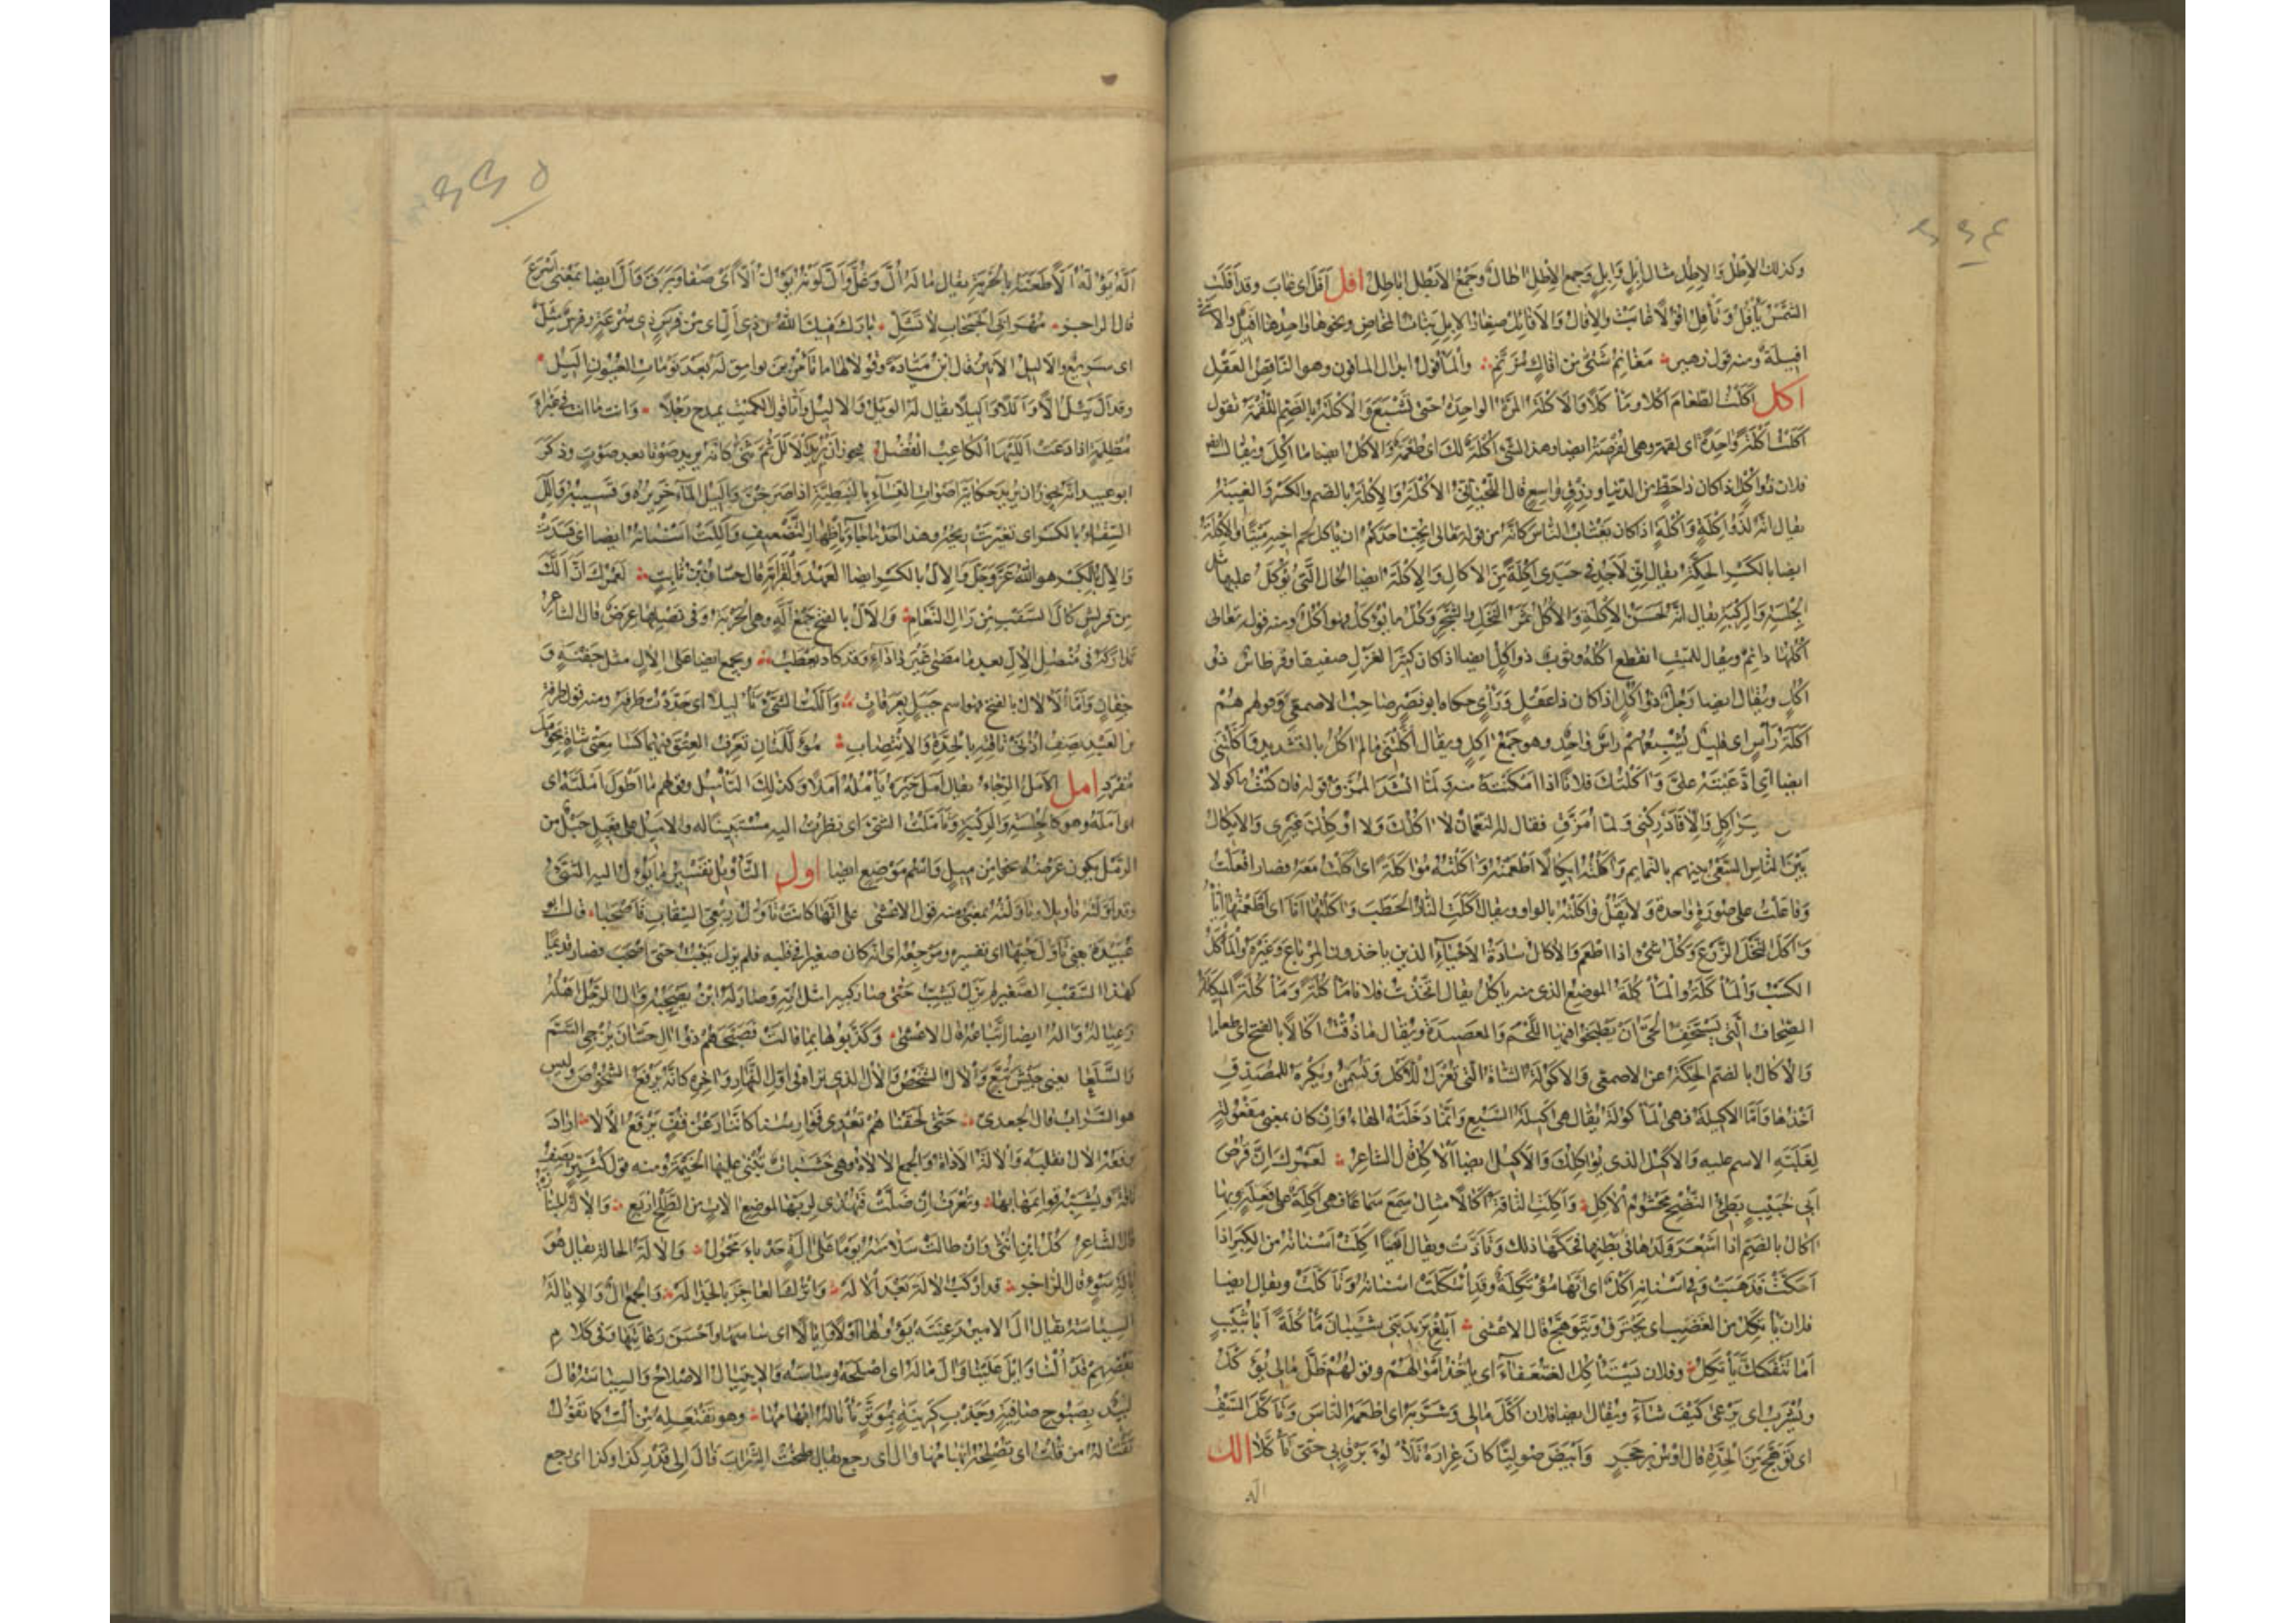 وكذلك الأطل والاطل مثال ابل وابل وجمع الاطل اطال وجمع الأيطل اياطل افل افل اى غاب وقد افلت
الشمس تأفل وتأفل افولا غابت والافال والافائل صغار الابل بنات المخاض ونحوها واحدها افيل والانثى
افيلة ومنه قول زهير مغانم شتى من افال مزنم والمأفول ابدال المافون وهو الناقص العقل
اكل اكلت الطعام اكلا ومأكلا والاكلة المرة الواحدة حتى تشبع والاكلة بالضم اللقمة تقول
اكلت اكلة واحدة اى لقمة وهى القرصة ايضا وهذا الشىء اكلة لك اى طعمة والاكل ايضا ما اكل ويقال ايضا
فلان ذو اكل اذا كان ذا حظ من الدنيا ورزق واسع قال اللحيانى الاكلة والاكلة بالضم والكسر الغيبة
يقال انه لذو اكلة واكلة اذا كان يغتاب الناس كانه من قوله تعالى ايحب احدكم ان ياكل لحم اخيه ميتا والاكلة
ايضا بالكسر الحكة يقال انى لاجد فى جسدى اكلة من الاكال والاكلة ايضا الحال التى يؤكل عليها مثل
الجلسة والركبة يقال انه لحسن الاكلة والاكل ثمر النخل والشجر وكل ما يؤكل فهو اكل ومنه قوله تعالى
اكلها دائم ويقال للميت انقطع اكله وثوب ذو اكل ايضا اذا كان كثير الغزل صفيقا وقرطاس ذو
اكل ويقال ايضا رجل ذو اكل اذا كان ذا عقل وراى حكاه ابو نصر صاحب الاصمعى وقولهم هم
اكلة رأس اى قليل يشبعهم راس واحد وهو جمع اكل ويقال اكلتنى ما لم اكل بالتشديد واكلتنى
ايضا اى ادعيته على واكلتك فلانا اذا امكنته منه ولما انشد الممزق قوله فان كنت ماكولا
فكن خير اكل والا فادركنى ولما امزق فقال له النعمان لا اكلك ولا اوكلك غيرى والايكال
بين الناس السعى بينهم بالنمايم واكلته ايكالا اطعمته واكلته مؤاكلة اى اكلت معه فصار افعلت
وفاعلت على صورة واحدة ولا يقل واكلته بالواو ويقال اكلت النار الحطب واكلتها انا اى اطعمتها اياه
واكل النخل الزرع وكل شىء اذا اطعم والاكال سادة الاحياء الذين ياخذون المرباع وغيره والمأكل
الكسب والمأكلة والمأكلة الموضع الذى منه ياكل يقال اتخذت فلانا مأكلة ومأكلة المئكلة
الصحاف التى يستخف الحى ان يطبخوا فيها اللحم والعصيدة ويقال ما ذقت اكالا بالفتح اى طعاما
والاكال بالضم الحكة عن الاصمعى والاكولة الشاة التى تعزل للاكل وتسمن ويكره للمصدق
اخذها واما الاكيلة فهى المأكولة يقال هى اكيلة السبع وانما دخلته الهاء وان كان بمعنى مفعولة
لغلبة الاسم عليه والاكيل الذى يؤاكلك والاكيل ايضا الاكل قال الشاعر لعمرك ان قرص
ابى خبيب بطىء النضج محشوم الاكيل واكلت الناقة اكالا مثال سمع سماعا فهى اكلة على فعلة وبها
اكال بالضم اذا اشعر ولدها فى بطنها فحكها ذلك وتأذت ويقال ايضا اكلت اسنانه من الكبر اذا
احتكت فذهبت وفى اسنانه اكل اى انها مؤتكلة وقد ائتكلت اسنانه وتاكلت ويقال ايضا
فلان يأتكل من الغضب اى يحترق ويتوهج قال الاعشى ابلغ يزيد بنى شيبان مألكة ابا ثبيت
اما تنفك تأتكل وفلان يستأكل الضعفاء اى ياخذ اموالهم وقولهم ظل مالى يؤكل
ويشرب اى يرعى كيف شاء ويقال ايضا فلان اكل مالى وشربه اى اطعمه الناس وتاكل السيف
اى توهج من الحدة قال اوس بن حجر وابيض صوليا كان غراره تلألؤ برق فى حبى تأكلا الل
اله
اله يؤله الا طعنه بالحربة يقال ما له ال وغل وال لونه يؤل الا اى صفا وبرق وال ايضا بمعنى اسرع
قال الراجز مهر ابى الحبحاب لا تشل بارك فيك الله من ذى ال اى من فرس ذى سرعة وفرس مئل
اى سريع والاليل الانين قال ابن ميادة وقولا لها ما تأمرين بوامق له بعد نومات العيون اليل
وقد ال يئل الا واللا واليلا يقال له الويل والاليل واما قول الكميت يمدح رجلا وانت ما انت فى غبراء
مظلمة اذا دعت الليها الكاعب الفضل يجوز ان يريد الالل ثم ثنى كانه يريد صوتا بعد صوت وذكر
ابو عبيد انه يجوز ان يريد حكاية اصوات النساء بالنبطية اذا صرخن واليل الماء خريره وقسيبه والل
السقاء بالكسر اى تغيرت ريحه وهذا احد ما جاء باظهار التضعيف واللت اسنانه ايضا اى فسدت
والال بالكسر هو الله عز وجل والال بالكسر ايضا العهد والقرابة قال حسان بن ثابت لعمرك ان الك
من قريش كال السقب من رال النعام والال بالفتح جمع الة وهى الحربة وفى نصلها عرض قال الشاعر
تداركه فى منصل الال بعد ما مضى غير دأداء وقد كاد يعطب ويجمع ايضا على الال مثل جفنة و
جفان واما الالال بالفتح فهو اسم جبل بعرفات واللت الشىء تأليلا اى حددت طرفه ومنه قول طرفة
بن العبد يصف اذنى ناقته بالحدة والانتصاب مؤللتان تعرف العتق فيهما كسامعتى شاة بحومل
مفرد امل الامل الرجاء يقال امل خيره يأمله املا وكذلك التأميل وقولهم ما اطول املته اى
امله وهو كالجلسة والركبة وتأملت الشىء اى نظرت اليه مستبينا له والاميل على فعيل حبل من
الرمل يكون عرضه نحوا من ميل واسم موضع ايضا اول التأويل تفسير ما يؤل اليه الشىء
وقد اولته تأويلا وتأولته بمعنى ومنه قول الاعشى على انها كانت تأول حبها تأول ربعى السقاب فاصحبا قال ابو
عبيدة يعنى تأول حبها اى تفسيره ومرجعه اى انه كان صغيرا فى قلبه فلم يزل ينبت حتى اصحب فصار قديما
كهذا السقب الصغير لم يزل يشب حتى صار كبيرا مثل امه وصار له ابن يصحبه وال الرجل اهله
وعياله واله ايضا اتباعه قال الاعشى وكذبوها بما قالت فصبحهم ذو ال حسان يزجى السم
والسلعا يعنى جيش تبع والال الشخص والال الذى تراه فى اول النهار واخره كانه يرفع الشخوص وليس
هو السراب قال الجعدى حتى لحقنا هم تعدى فوارسنا كاننا رعن قف يرفع الالا اراد
يرفعه الال فقلبه والالة الاداة والجمع الالات وهى خشبات يبنى عليها الخيمة ومنه قول كثير يصف
ناقة ويشبه قوائمها بها وتعرف ان ضلت فتهدى لربها لموضع الات من الطلح اربع والالة الجنازة
قال الشاعر كل ابن انثى وان طالت سلامته يوما على الة حدباء محمول والالة الحالة يقال هو
بالة سوء قال الراجز قد اركب الالة بعد الاله واترك العاجز بالجداله والجمع ال والايالة
السياسة يقال ال الامير رعيته يؤولها اولا وايالا اى ساسها واحسن رعايتها وفى كلام
بعضهم قد النا وايل علينا وال ماله اى اصلحه وساسه والائتيال الاصلاح والسياسة قال
لبيد بصبوح صافية وجذب كرينة بموتر تأتاله ابهامها وهو تفتعله من الت كما تقول
تقتاله من قلت اى تصلحه ابهامها وال اى رجع يقال طبخت الشراب فال الى قدر كذا وكذا اى رجع